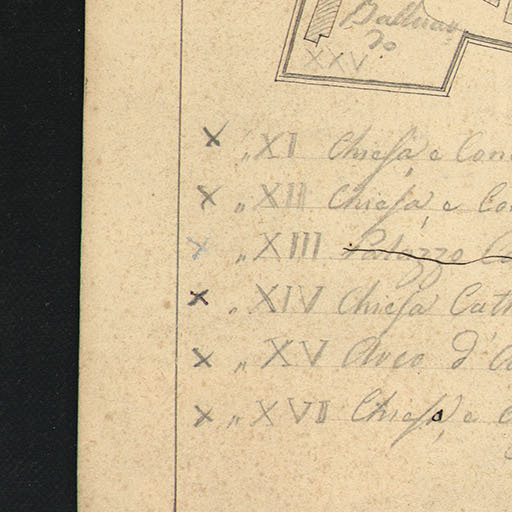 XXV.
× „ XI Chiesa e Con
× „ XII Chiesa e Co
× „ XIII Palazzo Ca
× „ XIV Chiesa Cath
× „ XV Arco d'A
× „ XVII Chiesa e